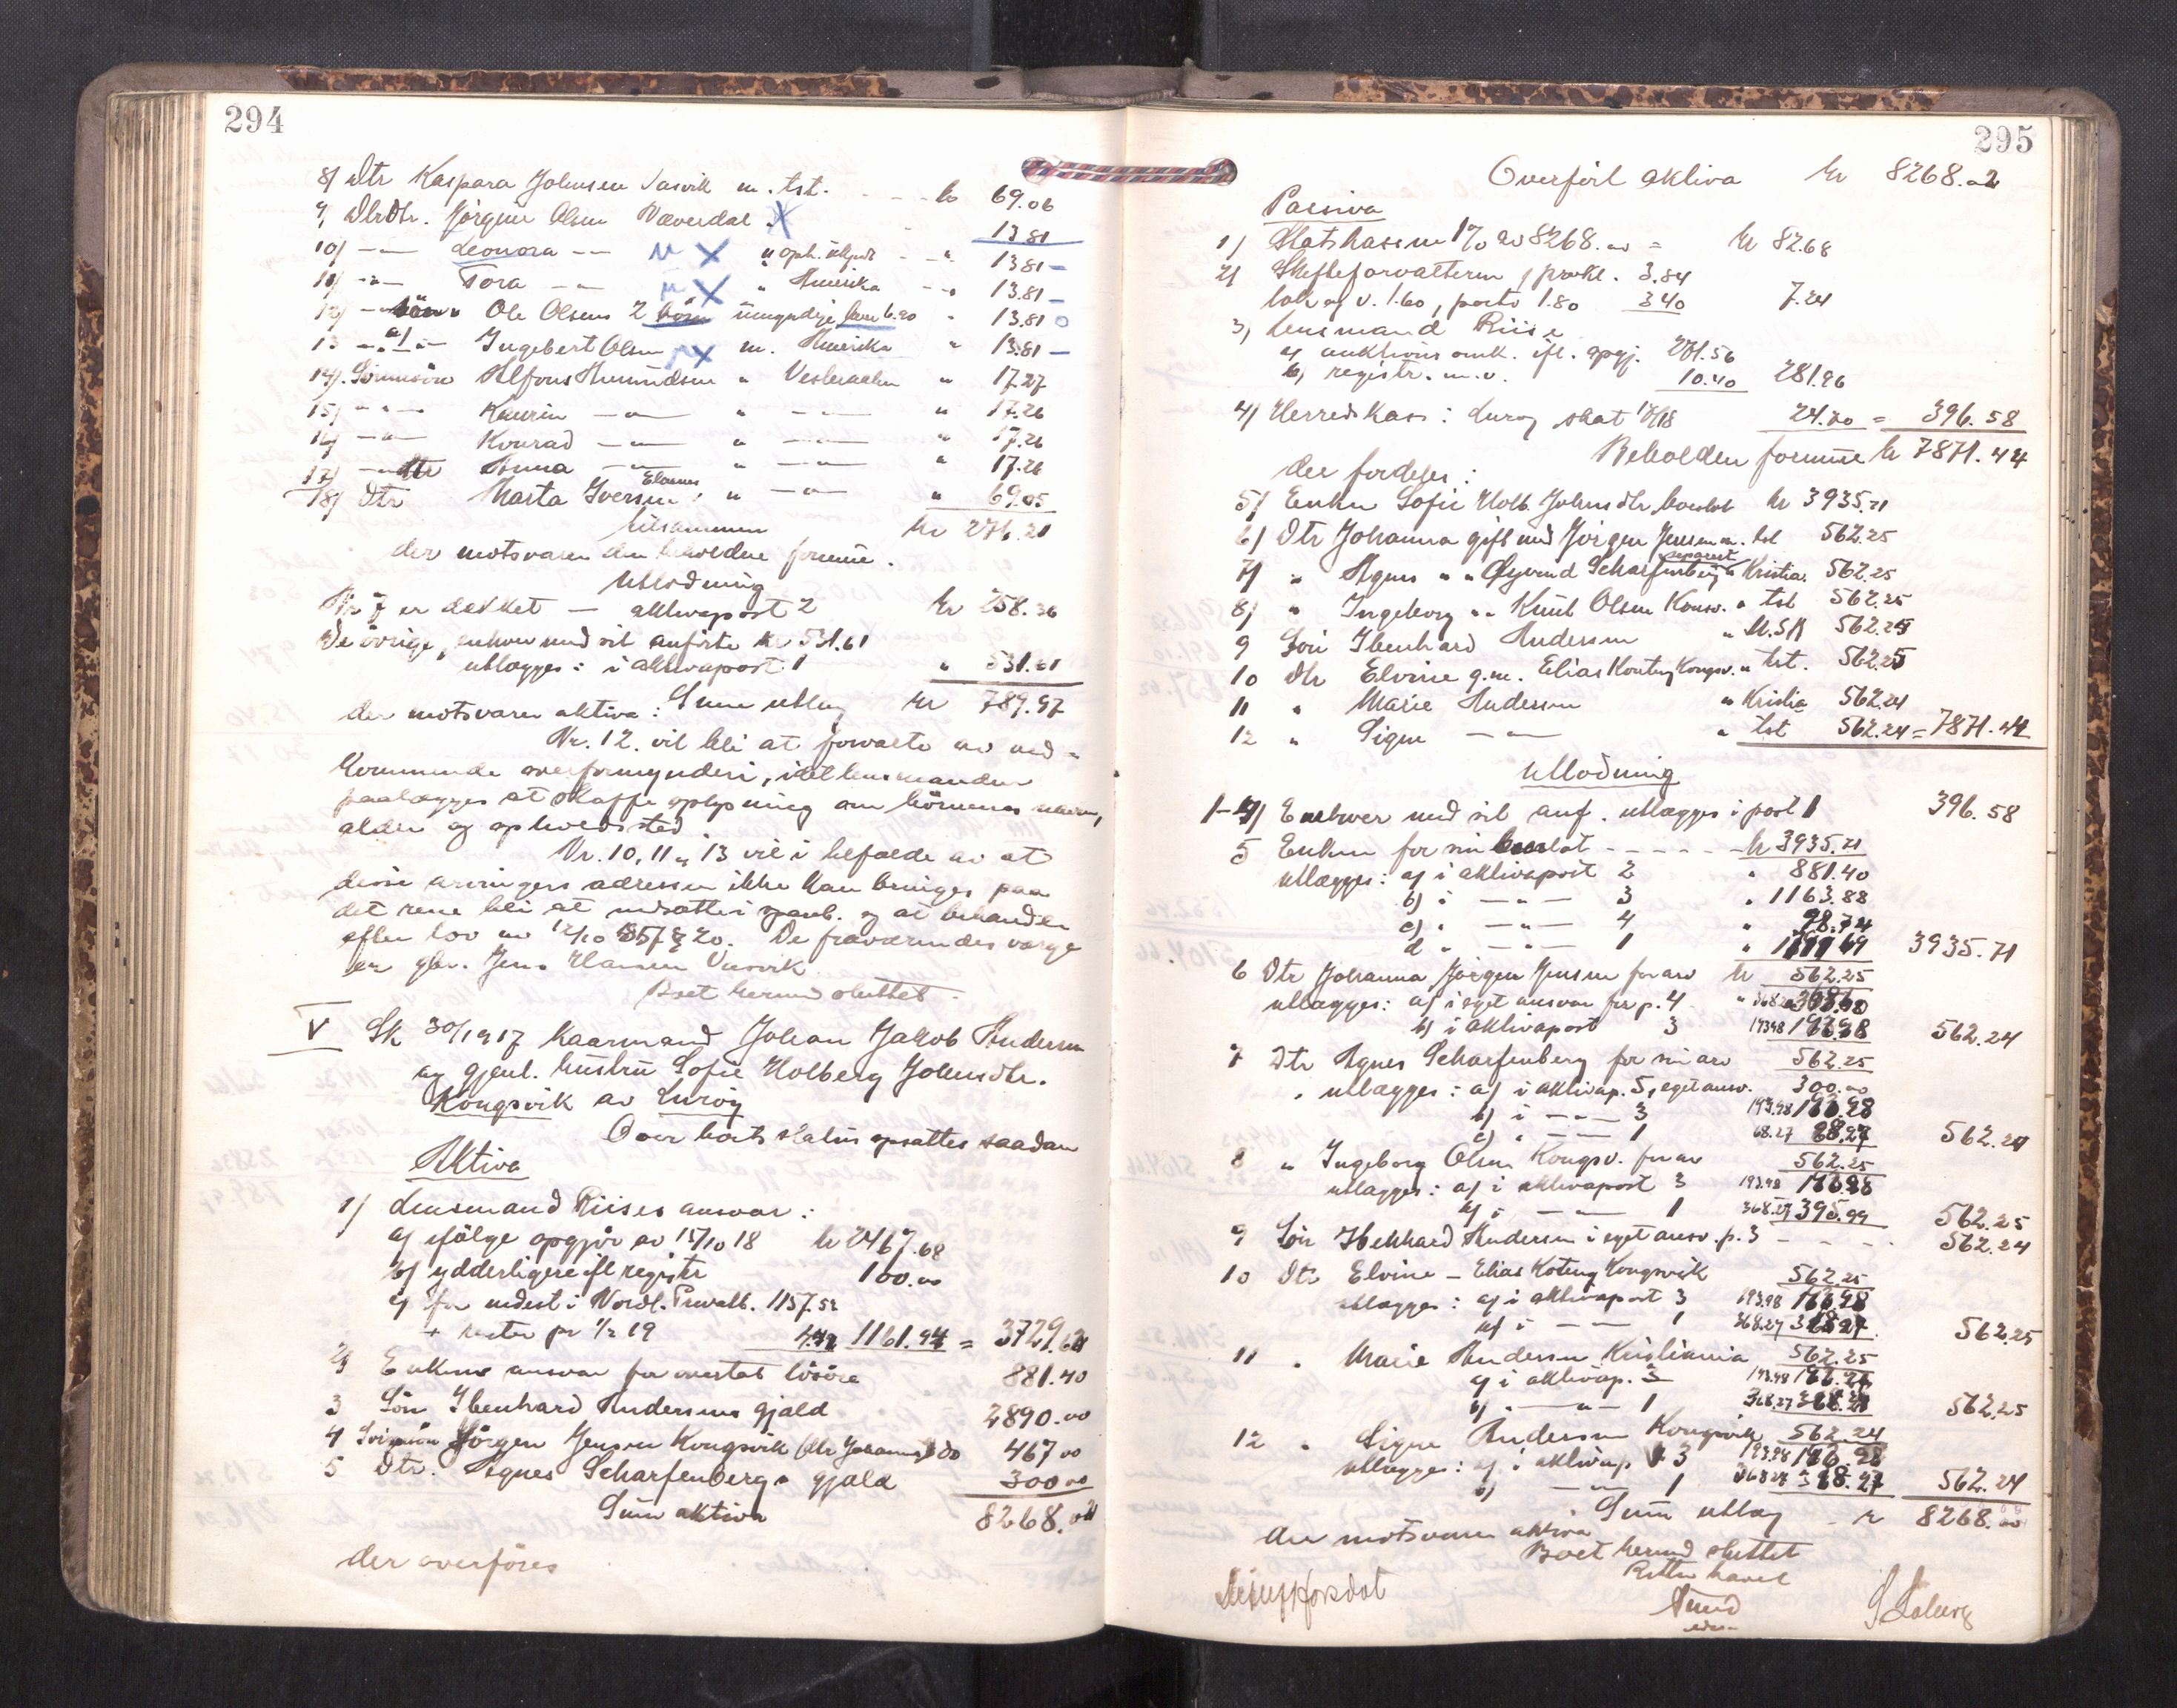 294
8) Dtr Kaspara Johnsen Vasvik m. tst. kr 69.06
9) Dtrdtr. Jörgine Olsen Næverdal X 13.81
10) —"— Leonora —"— X " oph. ukjendt " 13.81 –
11) —"— Tora —"— X " Amerika 13.81 –
12) —"— sön Ole Olsens 2 börn umyndige hver 6.90 " 13.81 0
13 —"— Ingebert Olsen X m. Amerika " 13.81 –
14) Sönnesön Alfons Amundsen " Vesteraalen " 17.27
15) —"— Kaurin —"— " —"— " 17.26
16) —"— Konrad —"— " —"— " 17.26
17) —"— dtr Anna —"— " —"— " 17.26
18) Dtr Marta Iversen " —"— " 69.05
tilsammen kr 276.21
der motsvarer den beholdne formue.
Utlodning
Nr 7 er dækket — aktivapost 2 kr 258.36
De övrige, enhver med sit anförte kr 531.61
utlægges: i aktivapost 1 " 531.61
der motsvarer aktiva: Sum utlæg kr 789.97
Nr. 12. vil bli at forvalte av ved-
kommende overformynderi, idet lensmanden
paalægges at skaffe oplysning om börnenes navn,
alder og opholdssted
Nr. 10, 11 og 13 vil i tilfælde av at
disse arvingers adresser ikke kan bringes paa
det rene bli at indsætte i spareb. og at behandle
efter lov av 12/10 1857 § 20. De fraværendes værge
er gbr. Jens Hansen Vasvik
Boet hermed sluttet.
V Sk 30/1917 kaarmand Johan Jakob Andersen
og gjenl. hustru Sofie Holberg Johnsdtr.
Kongsvik av Luröy
Over boets status opsattes saadan
Aktiva
1) Lensmand Riises ansvar:
a) ifölge opgjör av 15/10 18 kr 2467.68
b) ydderligere ifl registr 100.00
c) for indest i Nordl. Privatb. 1157.52
+ renter pr 1/2 19 4.42 1161.94 = 3729.62
2) Enkens ansvar for overtat lösöre 881.40
3 Sön Ibenhard Andersens gjæld 2890.00
4 Svigersön Jörgen Jensen Kongsvik (dtr Johanna) do 467.00
5 Dtr. Agnes Scharfenbergs gjæld 300.00
Sum aktiva 8268.02
der overföres
295
Overfört aktiva kr 8268.02
Passiva
1) Statskassen 1% av 8268.00 = kr 82.68
2) Skifteforvalteren f prokl. 3.84
bok og v. 1.60, porto 1.80 3.40 7.24
3) Lensmand Riise
a) auktions omk. ifl. opgj. 271.56
b) registr. m.v. 10.40 281.96
4) Herredskass: Luröy skat 17/18 24.70 = 396.58
Beholden formue kr 7871.44
der fordeles:
5) Enken Sofie Holb. Johnsdtr boslod kr 3935.71
6) Dtr Johanna gift med Jörgen Jensen m. tst 562.25
7) " Agnes " " Øyvind Scharfenberg separert " Kristia. 562.25
8) " Ingeborg " " Knut Olsen Konsv. " tst 562.25
9 Sön Ibenhard Andersen " U.S.A 562.25
10 dtr Elvine g.m. Elias Koteng Kongsv. " tst. 562.25
11 " Marie Andersen " Kristia 562.24
12 " Signe —"— " tst 562.24 = 7871.44
Utlodning
1-4) Enhver med sit anf. utlægges i post 1 396.58
5 Enken for sin boslot kr 3935.71
utlægges: a) i aktivapost 2 " 881.40
b) i —"— 3 " 1163.88
c) " —"— 4 " 98.74
d " —"— 1 " 3935.71
6 Dtr Johanna Jörgen Jensen for arv kr 562.25
utlægges: a) i eget ansvar for p. 4
b) i aktivapost 3 193.98 562.24
7 Dtr Agnes Scharfenberg for sin arv 562.25
utlægges: a) i aktivap. 5, eget ansv. 300.00
b) i —"— 3 193.98
c) " —"— 1 68.27 562.24
8 " Ingeborg Olsen Kongsv. for arv 562.25
utlægges: a) i aktivapost 3 193.98
b) i —"— 1 368.27 562.25
9 Sön Ibenhard Andersen i eget ansv. p. 3 562.24
10 Dtr Elvine – Elias Koteng Kongsvik 562.25
utlægges: a) i aktivapost 3 193.98
b) i —"— 1 368.27 562.25
11 " Marie Andersen Kristiania 562.25
a) i aktivap. 3 193.98
b) " —"— 1 368.27 562.25
12 " Signe Andersen Kongsvik 562.24
utlægges: a) i aktivap 3 193.98
b) —"— 1 368.27 562.24
Sum utlæg kr 8268.00
der motsvarer aktiva
Boet hermed sluttet
Retten hævet